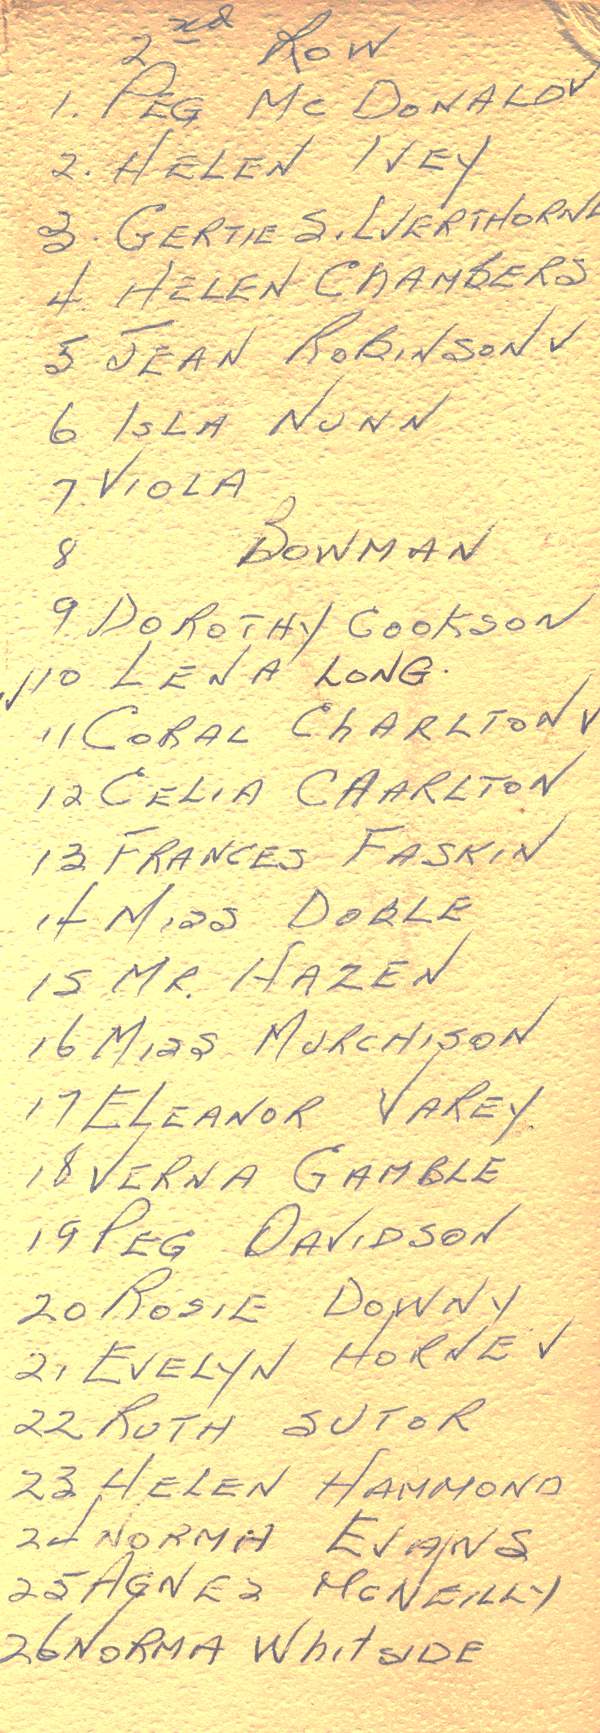 2nd Row
1. PEG McDONALD✓
2. HELEN IVEY
3. GERTIE SILVERTHORNE
4 HELEN ChAMBERS
5 JEAN ROBINSON ✓
6 ISLA NUNN
7 VIOLA
8 BOWMAN
9 DOROTHY COOKSON
✓10 LENA LONG.
11 CORAL ChARLTON ✓
12 CELIA CHARLTON
13 FRANCES FASKIN
14 MISS DOBLE
15 MR. HAZEN
16 MISS MURCHISON
17 ELEANOR VAREY
18 VERNA GAMBLE
19 PEG DAVIDSON
20 ROSIE DOWNY
21 EVELYN HORNE ✓
22 RUTH SUTOR
23 HELEN HAMMOND
24 NORMA EVANS
25 AGNES McNEILLY
26 NORMA WhitSIDE